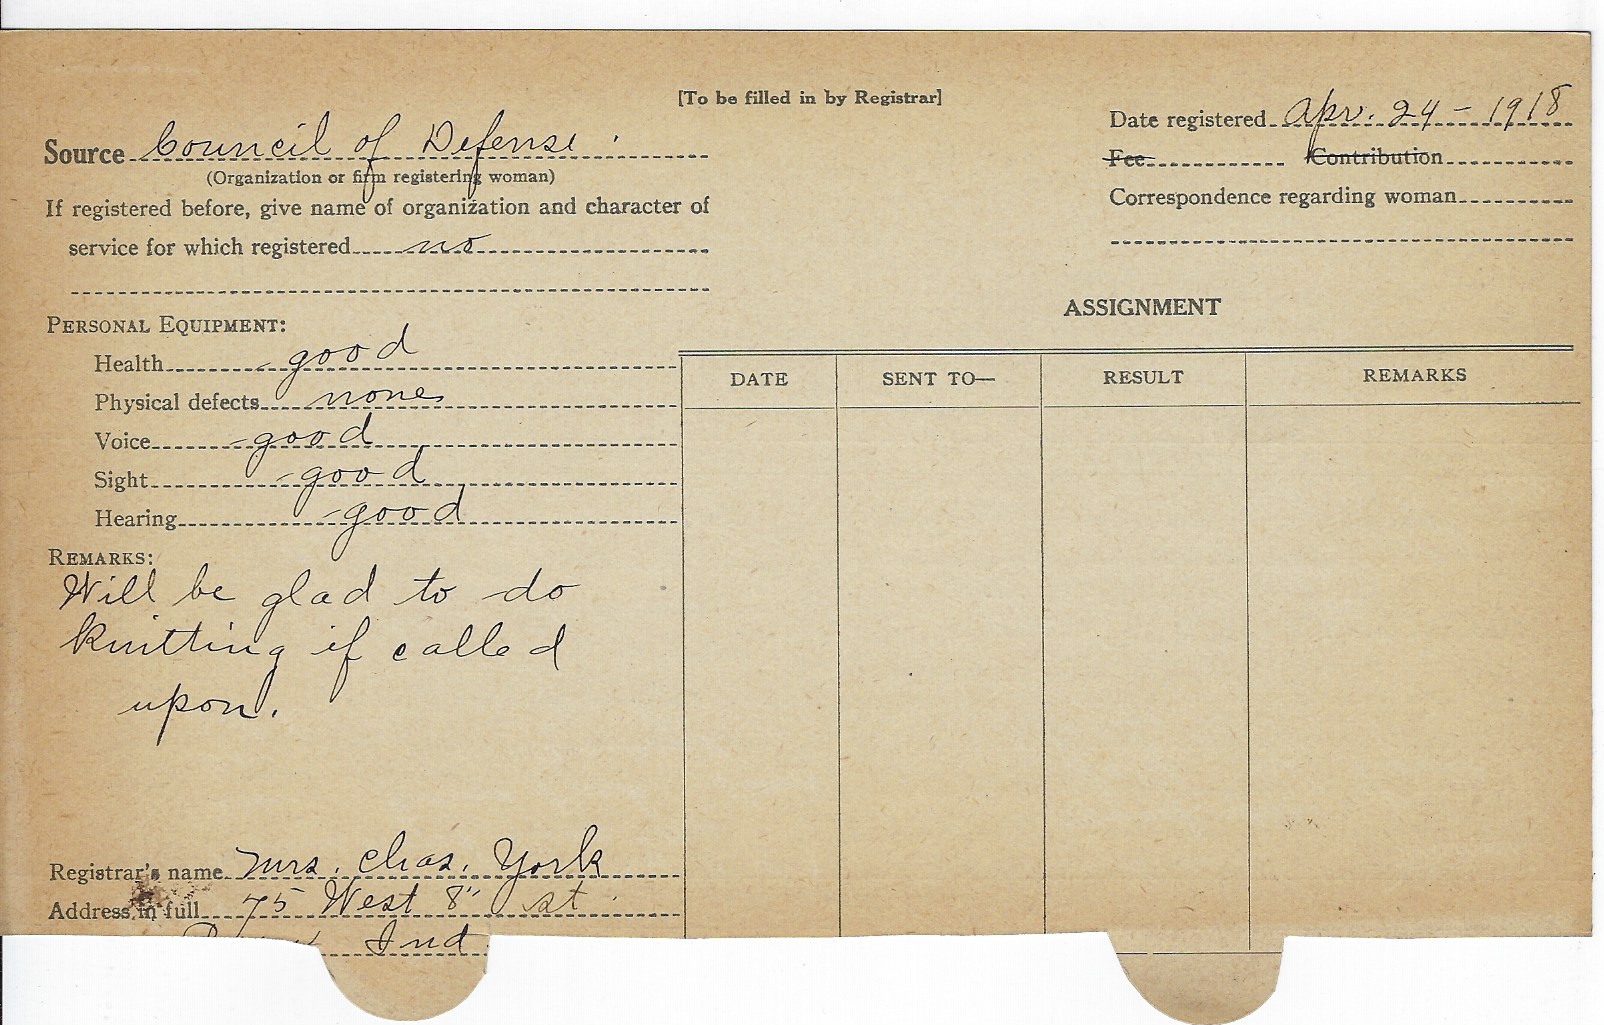 [To be filled in by Registrar]
Source Council of Defense.
(Organization or firm registering woman)
If registered before, give name of organization and character of
service for which registered no
Date registered Apr. 24 - 1918
Fee Contribution
Correspondence regarding woman
PERSONAL EQUIPMENT:
Health good
Physical defects none
Voice good
Sight good
Hearing good
REMARKS:
Will be glad to do
knitting if called
upon.
Registrar's name Mrs. Chas. York
Address in full 75 West 8" st.
Ind
ASSIGNMENT
DATE SENT TO— RESULT REMARKS